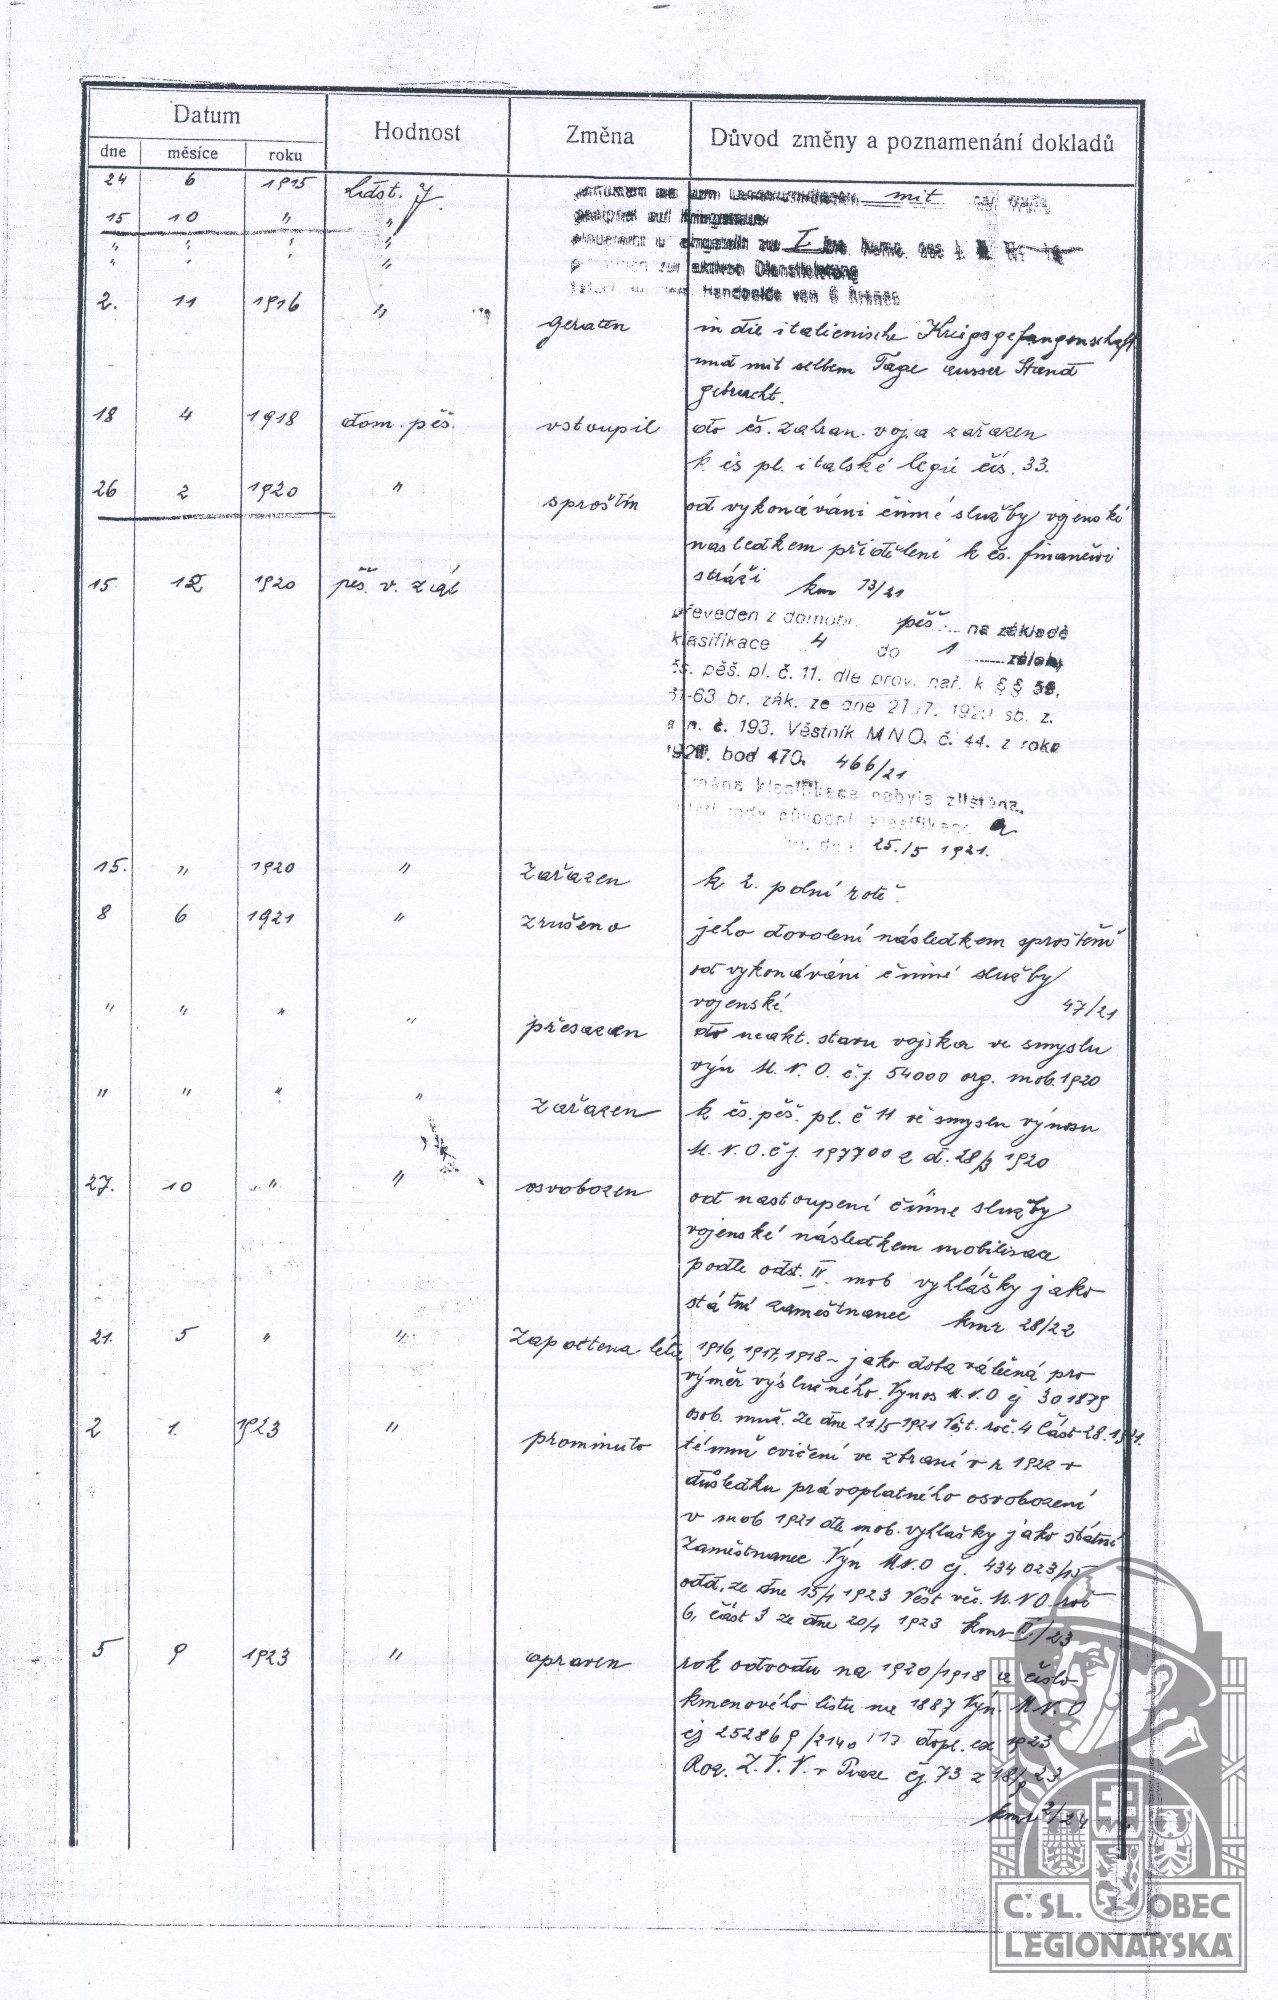 Datum
Hodnost
Změna
Důvod změny a poznamenání dokladů
dne měsíce roku
24 6 1915 Ldst. J.
mit
15 10 " "
" " " " I
" " " " aktiven Dienstleistung
Handgelde von 6 Kronen
2. 11 1916 " geraten in die italienische Kriegsgefangenschaft
und mit selbem Tage ausser Stand
gebracht.
18 4 1918 dom. pěš. vstoupil do čs. zahran. voj. a zařazen
k čs pl. italské legie čís. 33.
26 2 1920 " sproštěn od vykonávání činné služby vojenské
následkem přidělení k čs. finanční
stráži kmr 13/21
15 12 1920 pěš. v. zál
převeden z domobr. pěš. na základě
klasifikace 4 do 1 zálohy
čs. pěš. pl. č. 11. dle prov. nař. k §§ 58,
61-63 br. zák. ze dne 27./7. 1920 sb. z.
a n. č. 193. Věstník MNO. č. 44. z roku
192 . bod 470. 466/21
změna klasifikace nebyla zjištěna,
tedy původní klasifikace a
25./5 1921.
15. " 1920 " zařazen k 2. polní rotě.
8 6 1921 " zrušeno jeho dovolení následkem sproštění
od vykonávání činné služby
vojenské. 47/21
" " " " přesazen do neakt. stavu vojska ve smyslu
výn M. N. O. č.j. 54000 org. mob. 1920
" " " " zařazen k čs. pěš. pl. č 11 ve smyslu výnosu
M. N. O. čj. 197700 z d. 28/3 1920
27. 10 " " osvobozen od nastoupení činné služby
vojenské následkem mobilisace
podle odst. IV. mob vyhlášky jako
státní zaměstnanec kmr 28/22
21. 5 " " Započtena léta 1916, 1917, 1918 - jako doba válečná pro
výměr výslužného. Výnos M.N.O čj 301879
osob. muž. ze dne 21/5 1921 Věst. roč. 4 část 28. 1921.
2 1. 1923 " prominuto témuž cvičení ve zbrani v r 1922 v
důsledku právoplatného osvobození
v mob 1921 dle mob. vyhlášky jako státní
zaměstnanec. Výn M.N.O čj. 434023/15
odd. ze dne 15/1 1923 Věst věc. M.N.O. roč
6, část 3 ze dne 20/1 1923 kmr /23
5 9 1923 " opraven rok odvodu na 1920/1918 a číslo
kmenového listu na 1887 Výn. M.N.O
čj 252869/2140 13 dopl. ex 1923
Roz. Z.V.V. v Praze čj. 73 z 18/9 23
kmr 2/24
Č.SL. OBEC
LEGIONÁŘSKÁ